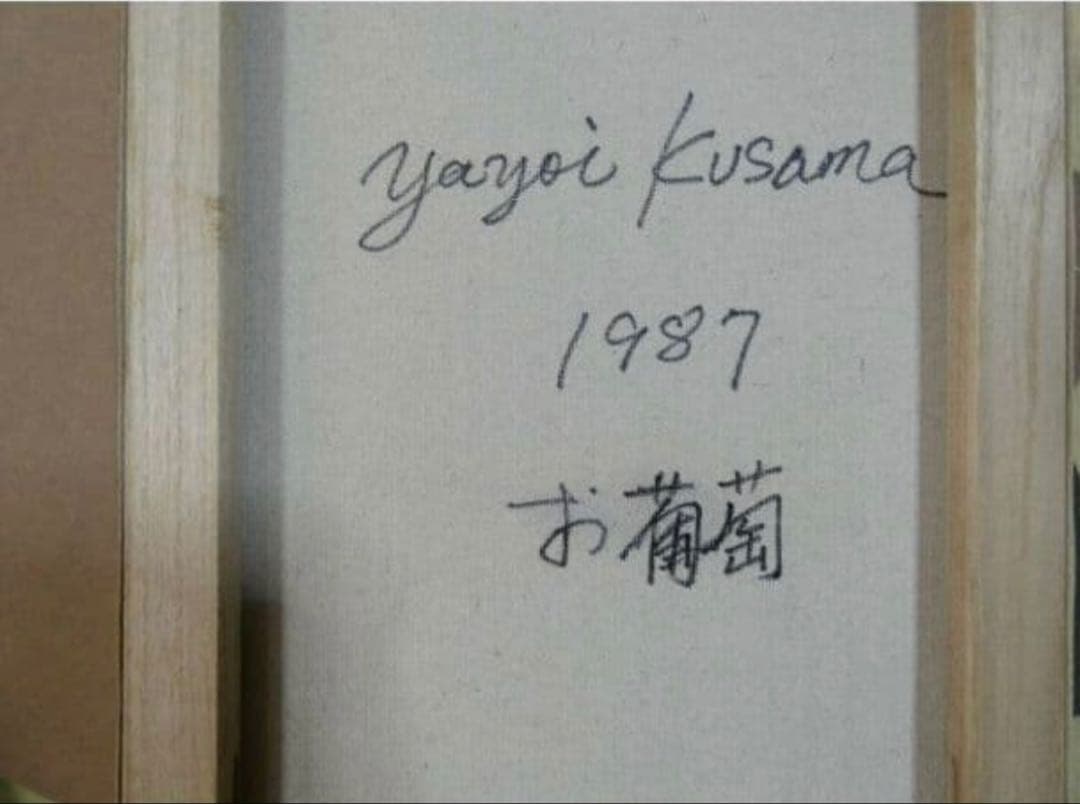 yayoi Kusama
1987
お葡萄